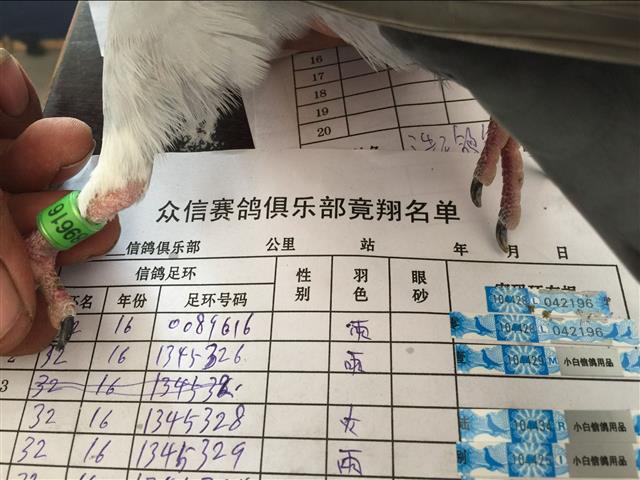 16
17
18
19
20
89616
众信赛鸽俱乐部竟翔名单
信鸽俱乐部 公里 站 年 月 日
信鸽足环 性别 羽色 眼砂
环名 年份 足环号码
104428 L 042196
32 16 0089616 雨 104428 L 042196
2 32 16 1345326 雨 104429 M 小白信鸽用品
3 32 16
32 16 1345328 灰 104434 R 小白信鸽用品
32 16 1345329 雨 104425 I 小白信鸽用品